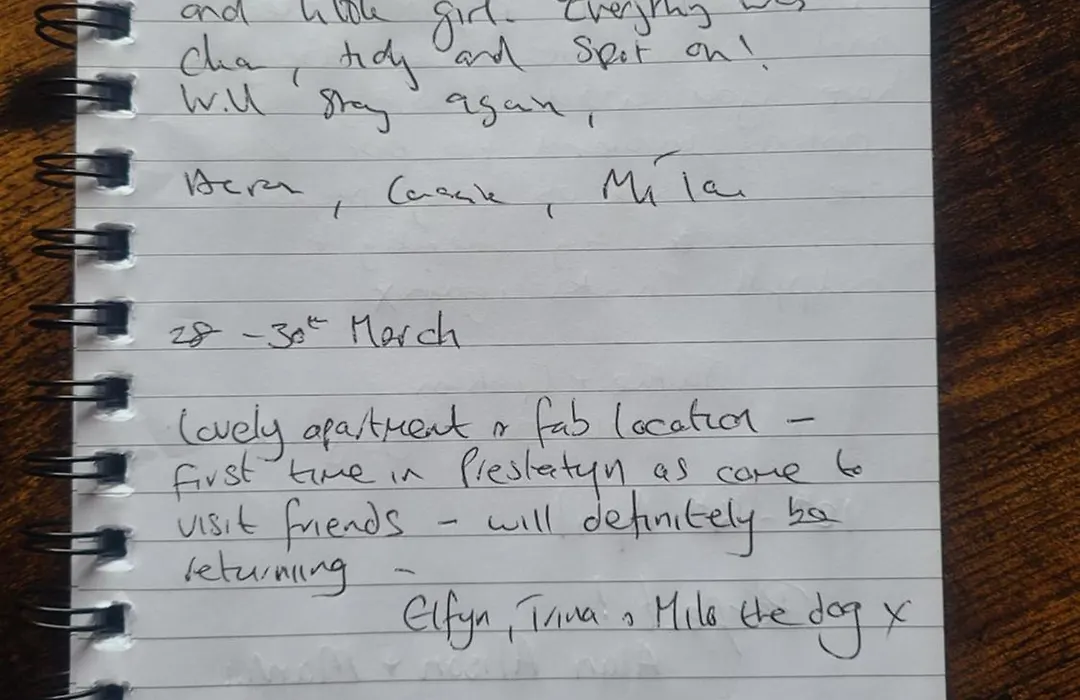 and little girl. Everything was
clean, tidy and spot on!
Will stay again,
28 - 30th March
lovely apartment & fab location -
first time in Prestatyn as came to
visit friends - will definitely be
returning -
Elfyn, Trina & Milo the dog x